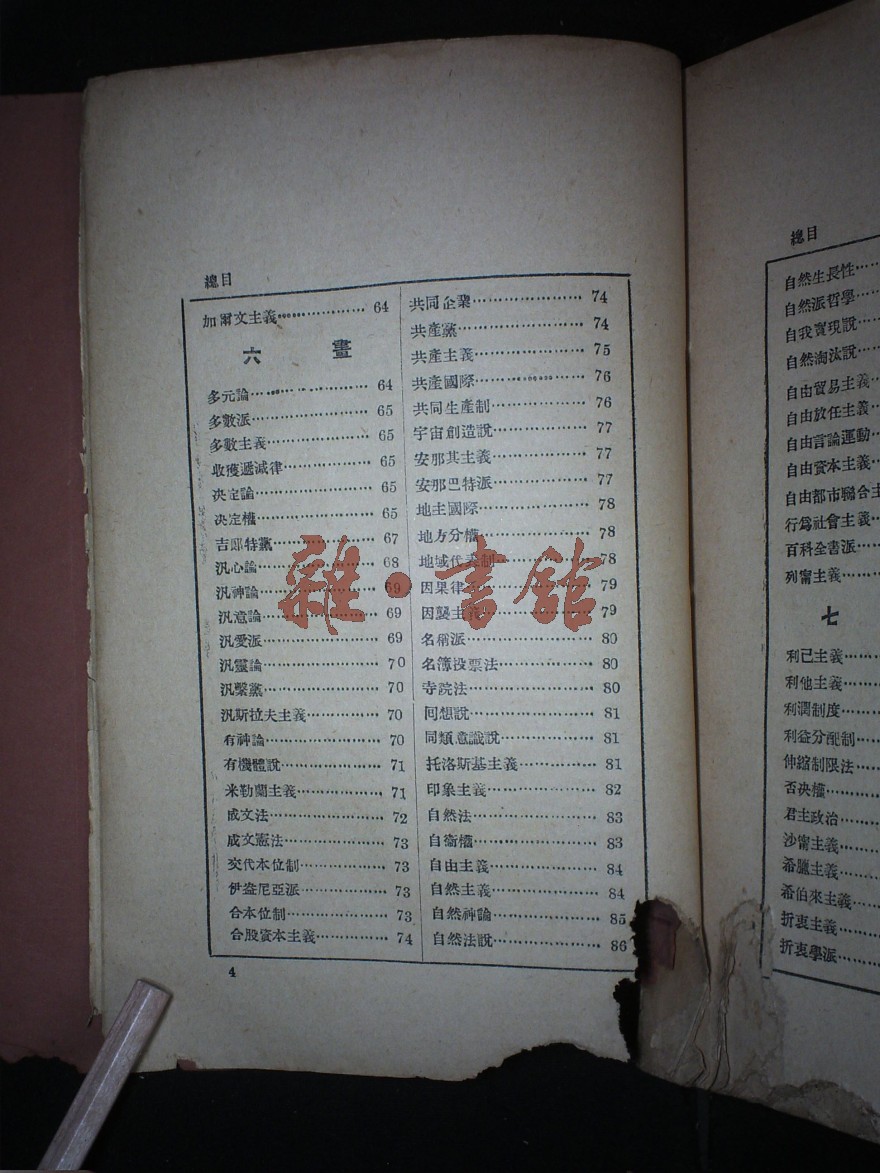 總目
加爾文主義……………… 64
六 畫
多元論……………… 64
多數派……………… 65
多數主義……………… 65
收獲遞減律……………… 65
决定論……………… 65
决定權……………… 65
吉鄖特黨……………… 67
汎心論……………… 68
汎神論……………… 69
汎意論……………… 69
汎愛派……………… 69
汎靈論……………… 70
汎繫黨……………… 70
汎斯拉夫主義……………… 70
有神論……………… 70
有機體說……………… 71
米勒蘭主義……………… 71
成文法……………… 72
成文憲法……………… 73
交代本位制……………… 73
伊壺尼亞派……………… 73
合本位制……………… 73
合股資本主義……………… 74
共同企業……………… 74
共產黨……………… 74
共產主義……………… 75
共產國際……………… 76
共同生產制……………… 76
宇宙創造說……………… 77
安那其主義……………… 77
安那巴特派……………… 77
地主國際……………… 78
地方分權……………… 78
地域代表制……………… 78
因果律……………… 79
因襲主義……………… 79
名稱派……………… 80
名簿投票法……………… 80
寺院法……………… 80
回想說……………… 81
同類意識說……………… 81
托洛斯基主義……………… 81
印象主義……………… 82
自然法……………… 83
自衞權……………… 83
自由主義……………… 84
自然主義……………… 84
自然神論……………… 85
自然法說……………… 86
4
雜·書館
總目
自然生長性……
自然派哲學……
自我實現說……
自然淘汰說……
自由貿易主義……
自由放任主義……
自由言論運動……
自由資本主義……
自由都市聯合主
行爲社會主義……
百科全書派……
列甯主義……
七
利己主義……
利他主義……
利潤制度……
利益分配制……
伸縮制限法……
否决權……
君主政治……
沙甯主義……
希臘主義……
希伯來主義……
折衷主義……
折衷學派……